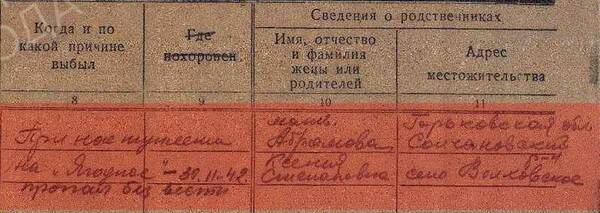 Когда и по
какой причине
выбыл
Где
похоронен.
Сведения о родственниках
Имя, отчество
и фамилия
жены или
родителей
Адрес
местожительства
8
9
10
11
При наступлении
на „Ягодное" – 30.11-42
пропал без вести
мать
Абрамова
Ксения
Степановна
Горьковская обл
р-н
село Волховское